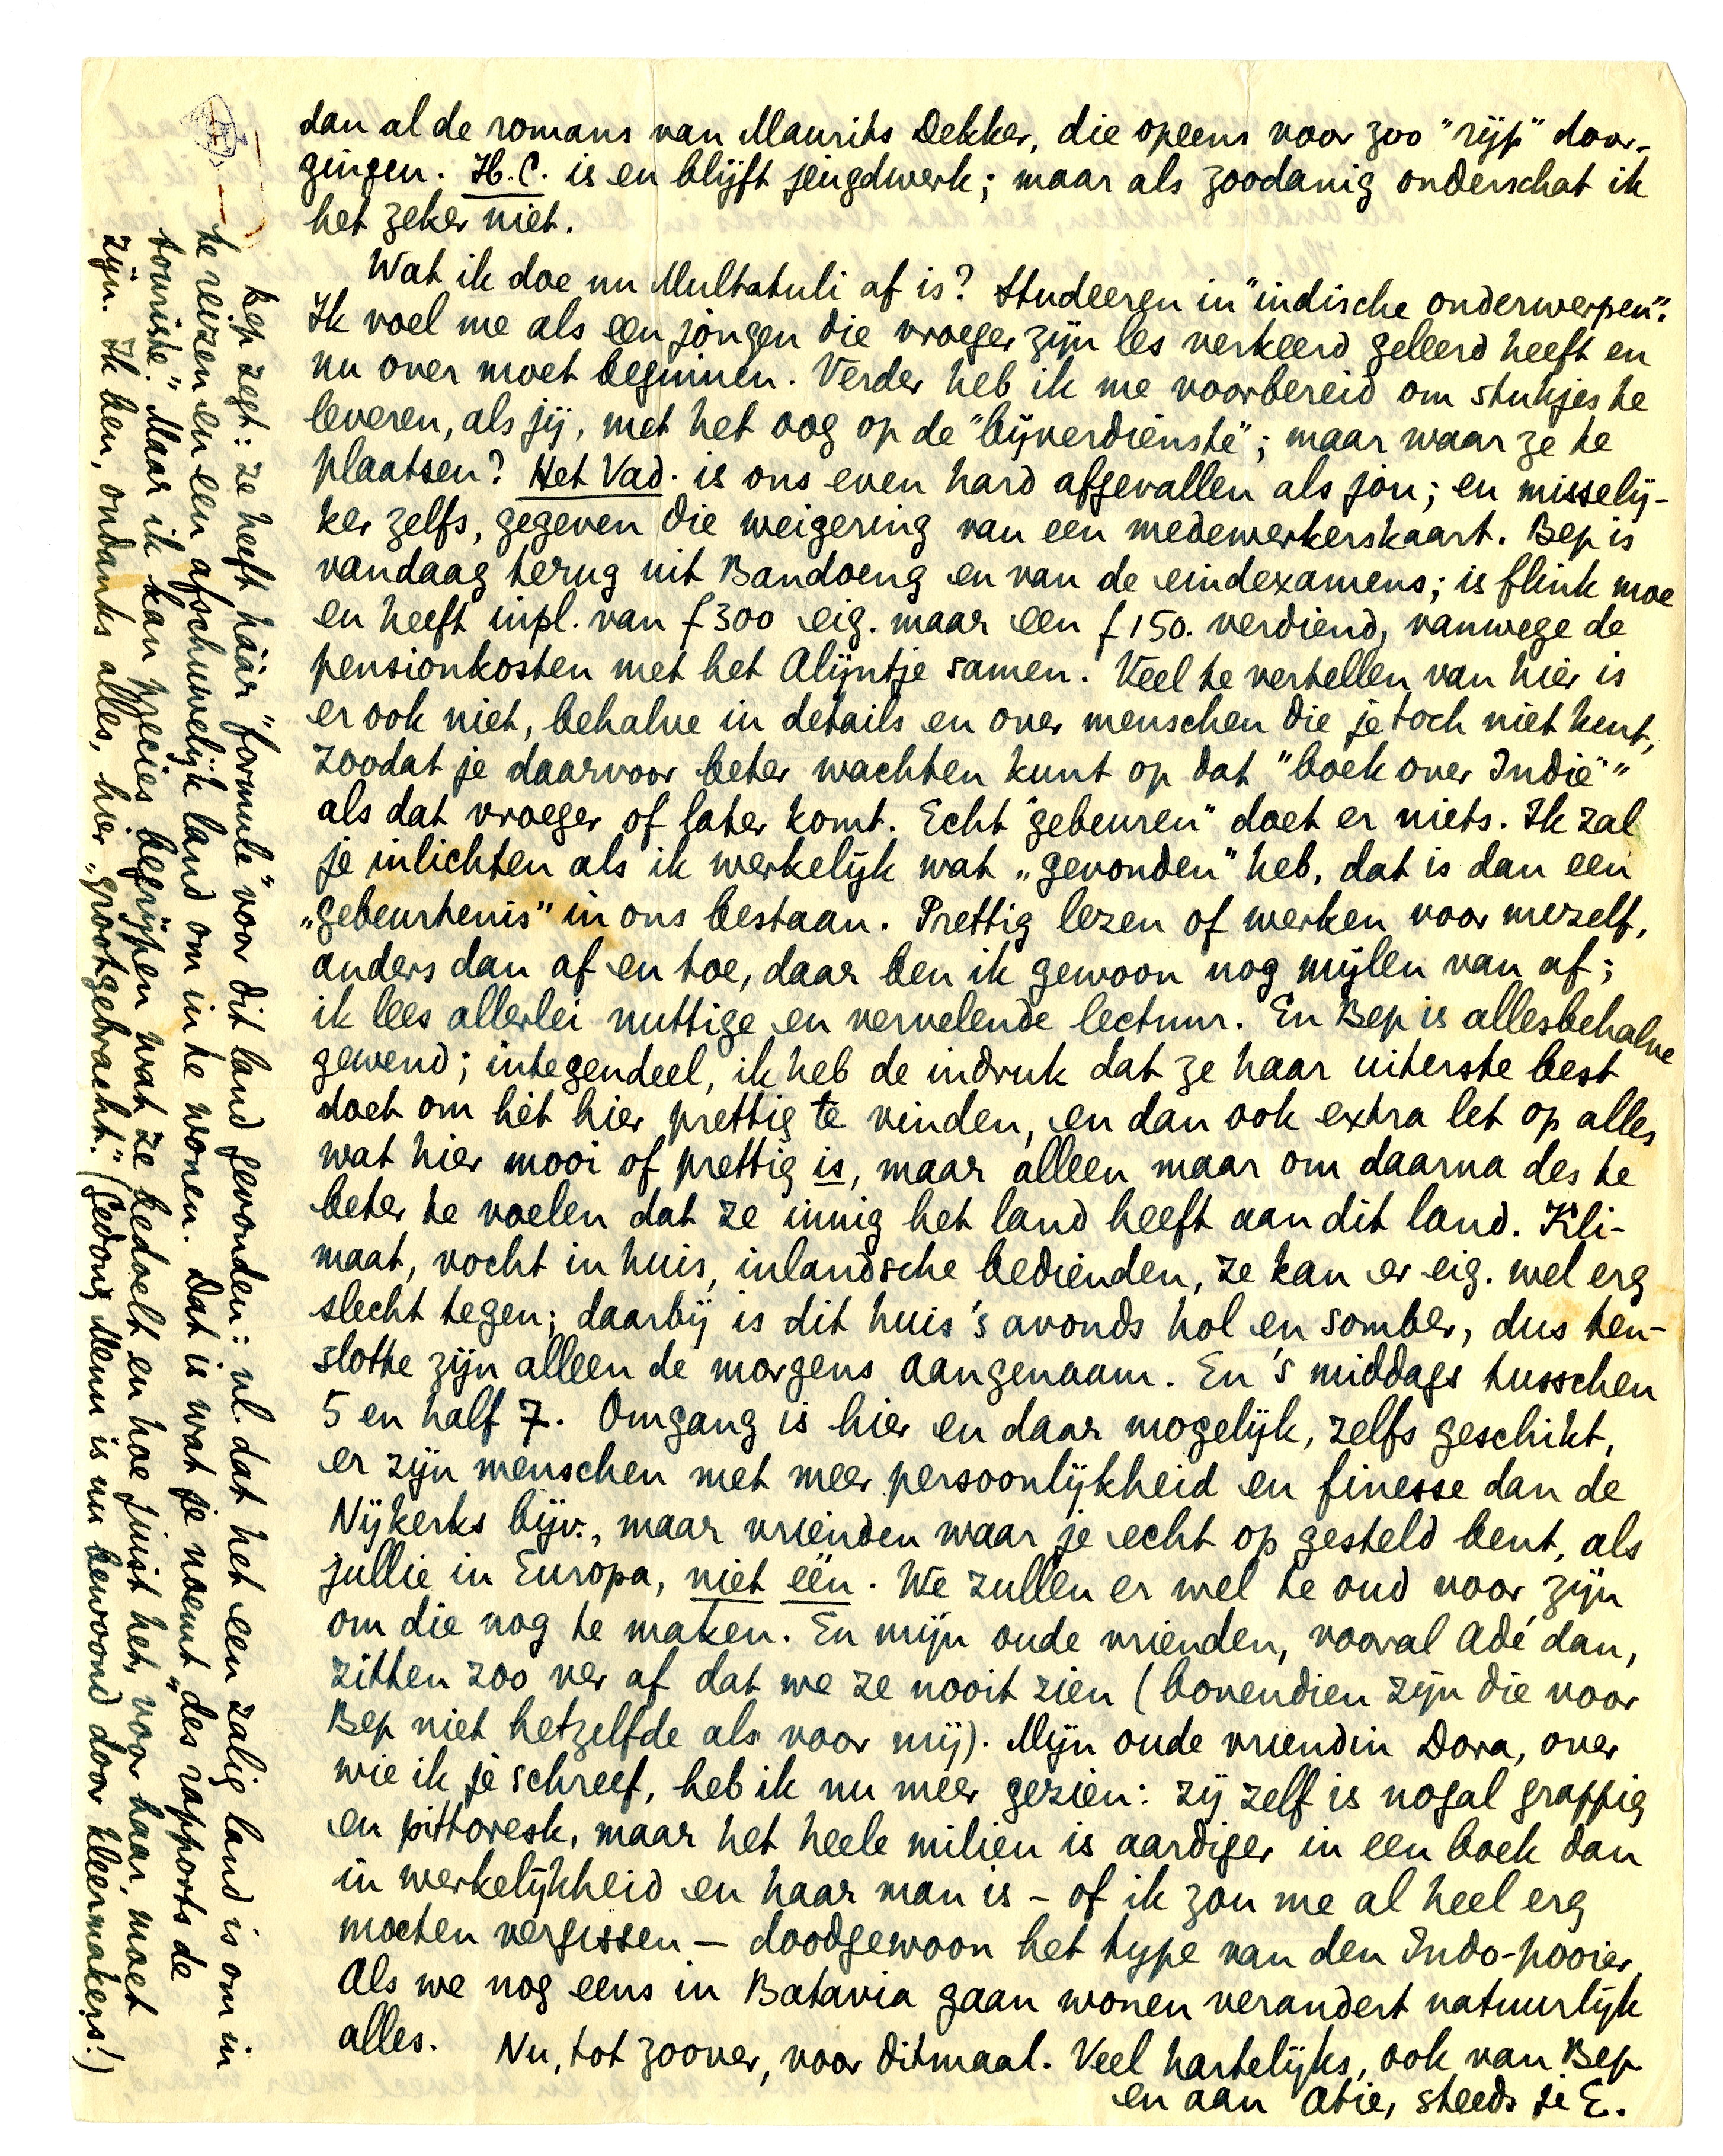 dan al de romans van Maurits Dekker, die opeens voor zoo "rijp" door-
gingen. H.C. is en blijft jeugdwerk; maar als zoodanig onderschat ik
het zeker niet.
Wat ik doe nu Multatuli af is? Studeeren in "indische onderwerpen".
Ik voel me als een jongen die vroeger zijn les verkeerd geleerd heeft en
nu over moet beginnen. Verder heb ik me voorbereid om stukjes te
leveren, als jij, met het oog op de "bijverdienste"; maar waar ze te
plaatsen? Het Vad. is ons even hard afgevallen als jou; en misselij-
ker zelfs, gegeven die weigering van een medewerkerskaart. Bep is
vandaag terug uit Bandoeng en van de eindexamens; is flink moe
en heeft inpl. van f 300 eig. maar een f 150. verdiend, vanwege de
pensionkosten met het Alijntje samen. Veel te vertellen van hier is
er ook niet, behalve in details en over menschen die je toch niet kent,
zoodat je daarvoor beter wachten kunt op dat "boek over Indië"
als dat vroeger of later komt. Echt "gebeuren" doet er niets. Ik zal
je inlichten als ik werkelijk wat „gevonden" heb, dat is dan een
„gebeurtenis" in ons bestaan. Prettig lezen of werken voor mezelf,
anders dan af en toe, daar ben ik gewoon nog mijlen van af;
ik lees allerlei nuttige en vervelende lectuur. En Bep is allesbehalve
gewend; integendeel, ik heb de indruk dat ze haar uiterste best
doet om hèt hier prettig te vinden, en dan ook extra let op alles
wat hier mooi of prettig is, maar alleen maar om daarna des te
beter te voelen dat ze innig het land heeft aan dit land. Kli-
maat, vocht in huis, inlandsche bedienden, ze kan er eig. wel erg
slecht tegen; daarbij is dit huis 's avonds hol en somber, dus ten-
slotte zijn alleen de morgens aangenaam. En 's middags tusschen
5 en half 7. Omgang is hier en daar mogelijk, zelfs geschikt,
er zijn menschen met meer persoonlijkheid en finesse dan de
Nijkerks bijv., maar vrienden waar je echt op gesteld bent, als
jullie in Europa, niet één. We zullen er wel te oud voor zijn
om die nog te maken. En mijn oude vrienden, vooral Adé dan,
zitten zoo ver af dat we ze nooit zien (bovendien zijn die voor
Bep niet hetzelfde als voor mij). Mijn oude vriendin Dora, over
wie ik je schreef, heb ik nu méér gezien: zij zelf is nogal grappig
en pittoresk, maar het heele milieu is aardiger in een boek dan
in werkelijkheid en haar man is – of ik zou me al heel erg
moeten vergissen – doodgewoon het type van den Indo-pooier.
Als we nog eens in Batavia gaan wonen verandert natuurlijk
alles. Nu, tot zoover, voor ditmaal. Veel hartelijks, ook van Bep
en aan Atie, steeds je E.
Bep zegt: ze heeft háár "formule" voor dit land gevonden: nl. dat het een zalig land is om in
te reizen en een afschuwelijk land om in te wonen. Dat is wat je noemt „des rapports de
touriste." Maar ik kan precies begrijpen wat ze bedoelt en hoe juist het, voor haar, moet
zijn. Ik ben, ondanks alles, hier „grootgebracht." (Gedong Menu is nu bewoond door kleermakers!)